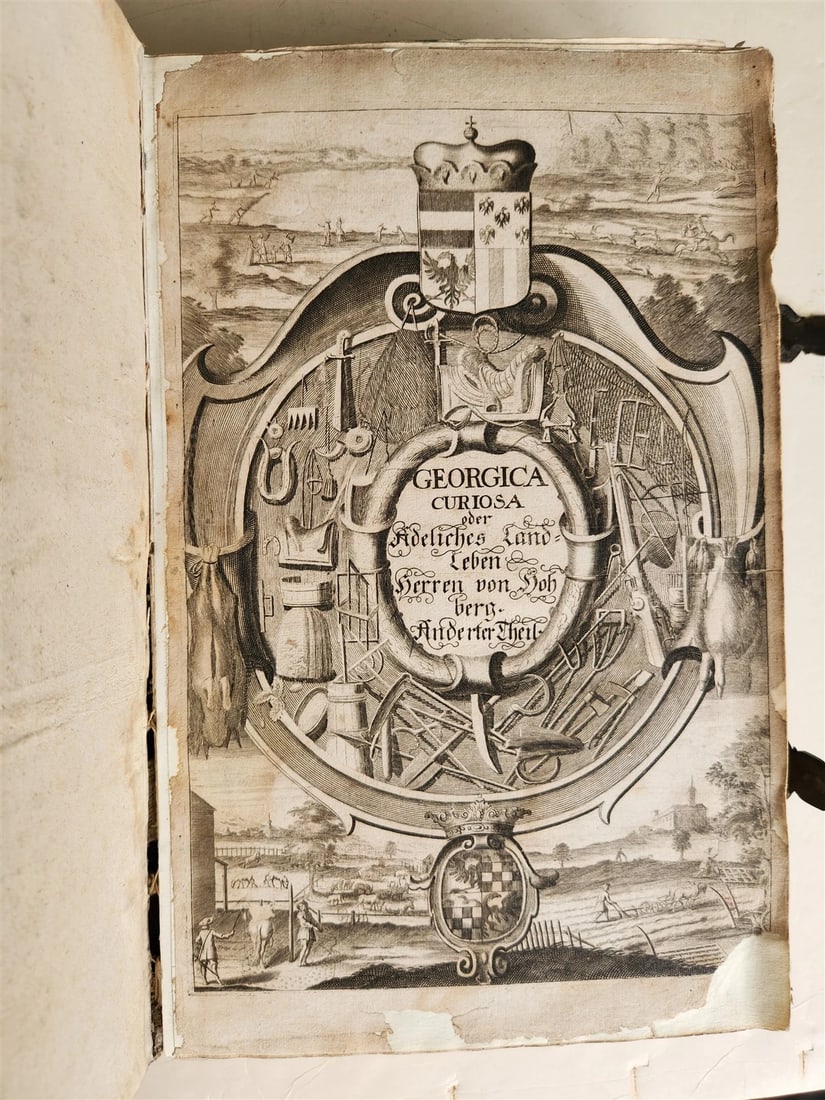 GEORGICA
CURIOSA
oder
Adeliches Land-
Leben
Herren von Hoh
berg.
Anderter Theil.